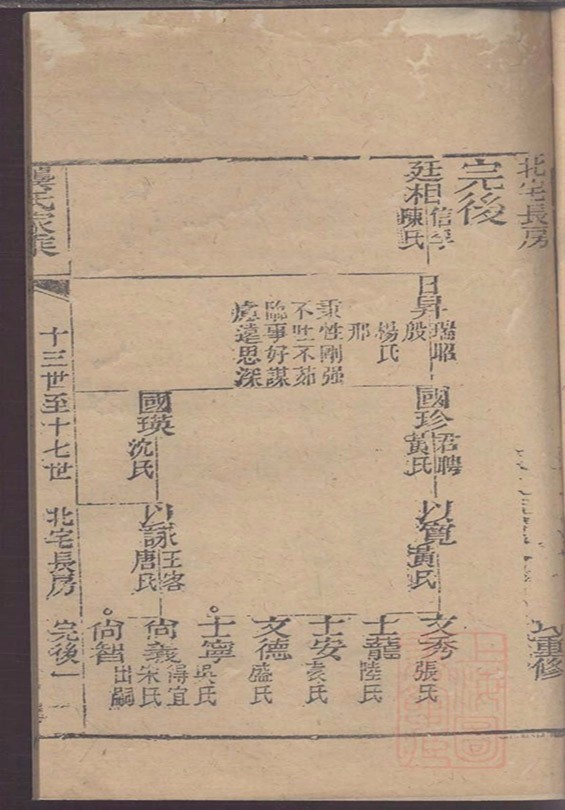 北宅長房
重修
完後
廷相 信孚
陳氏
日昇 瑞昭
殷
楊氏
邢
秉性剛强
不吐不茹
臨事好謀
慮遠思深
國珍 君聘
黃氏
國瑛
沈氏
以寬
黃氏
以詠 王客
唐氏
文秀
張氏
士龍
陸氏
士安
袁氏
文德
盛氏
士寧
吳氏
尚義 得宜
宋氏
尚智
出嗣
龔氏家乘
十三世至十七世 北宅長房 完後一